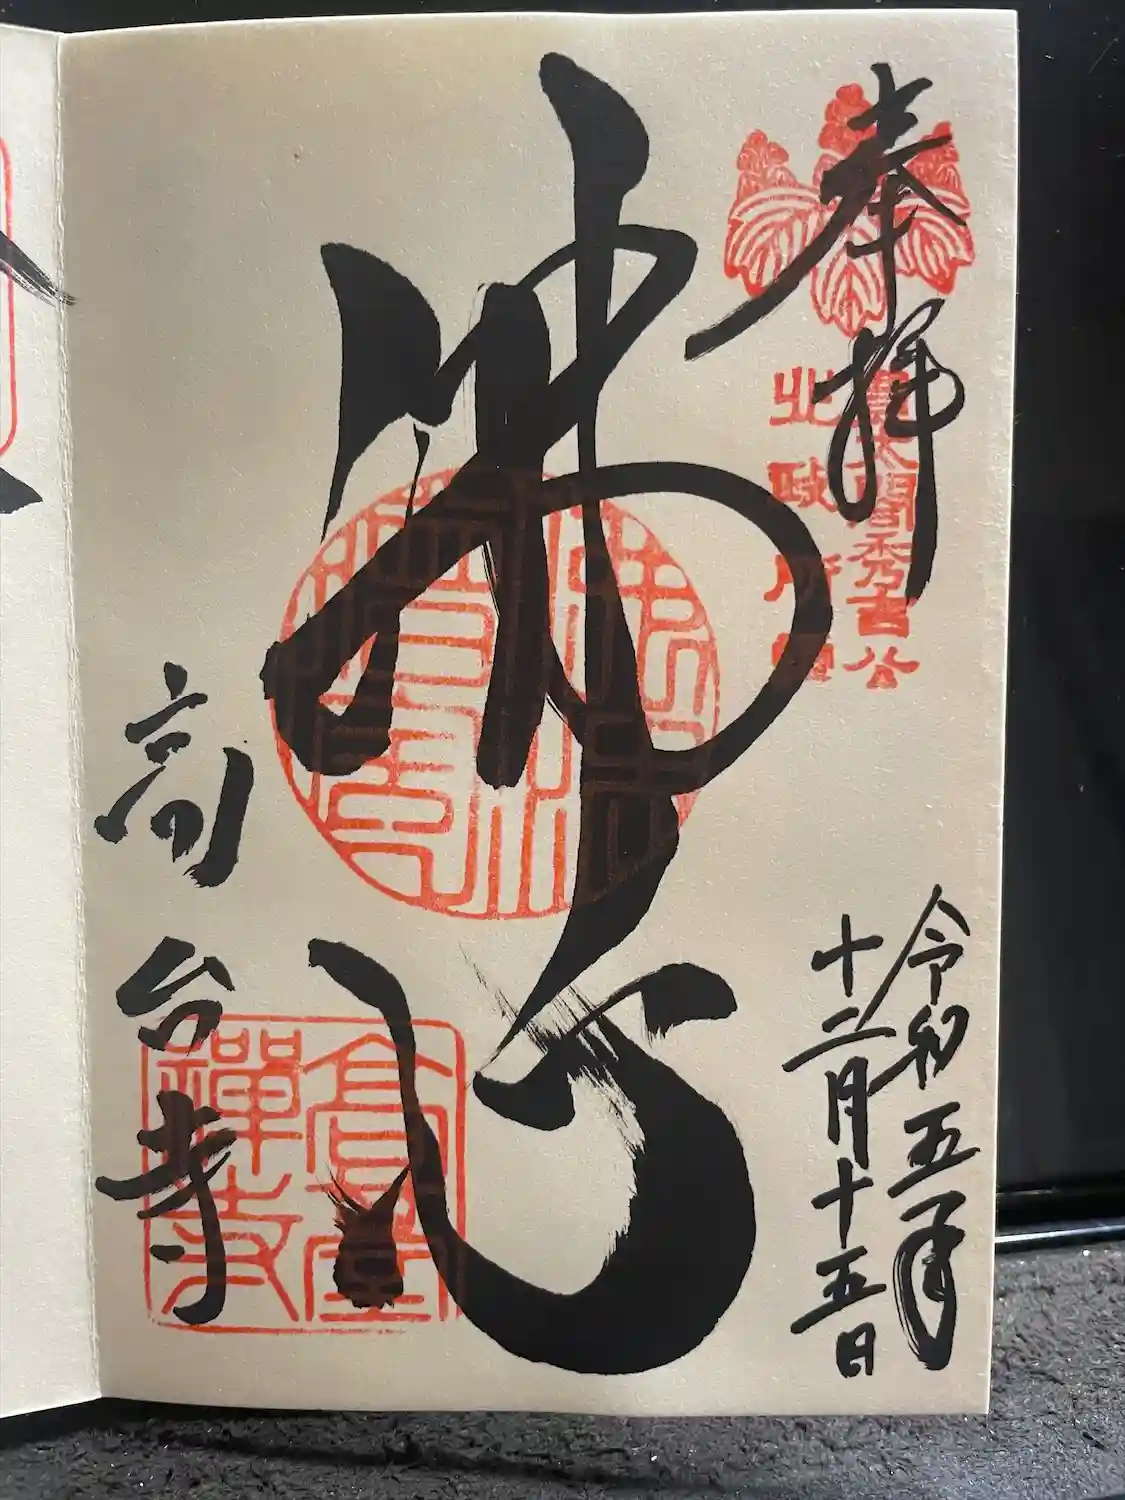 奉拝
豊太閤秀吉公
北政所
令和五年
十二月十五日
佛心
佛法僧寶
高台寺
高臺禪寺